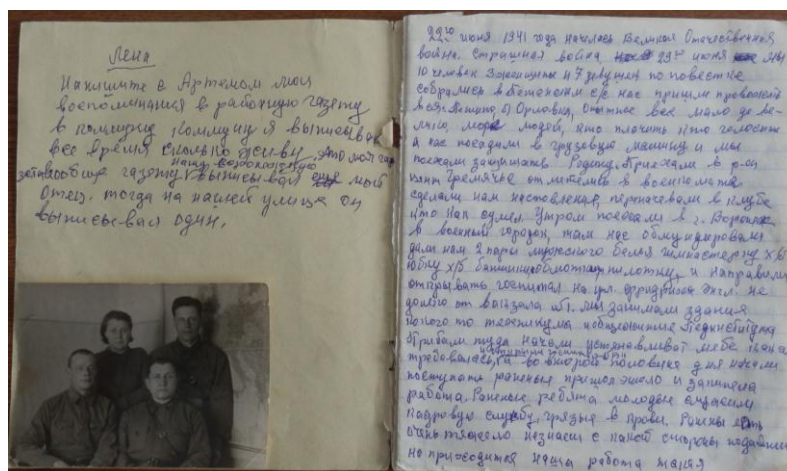 Лена
Напишите с Артемом мои
воспоминания в районную газету
в коммуну. Коммуну я выписываю
все время сколько живу. Это моя
газета вообще газету выписывал мой
отец. тогда на нашей улице он
выписывал один.
22го июня 1941 года началась Великая Отечественная
война. Страшная война 23го июня мы
10 человек и 7 девушек по повестке
собрались в с/с нас пришли провожать
Орловка, Опытное все мало до ве-
лико, море людей, кто плачить кто голосить
и нас посадили в грузовую машину и мы
поехали защищать Родину. Приехали в р-он
Гремячье отметились в военкомате
сделали нам наставление, переночевали в клубе
кто как сумел. Утром поехали в г. Воронеж
в военный городок, там нас обмундировали
дали нам 2 пары мужского белья гимнастерку х/б
юбку х/б пилотку, и направили
открывать госпиталь на ул. Фридриха Энгл. не
далеко от вокзала мы занимали здания
какого то техникума
туда начали устанавливат мебе кака
требовалась, во второй половине дня начали
поступать раненые пришол и закипела
работа. Раненые ребята молодые
кадровую службу, грязые в крови. Ранены есть
очень тяжело незнаеш с какой стороны подойти
но приходится наша работа такая